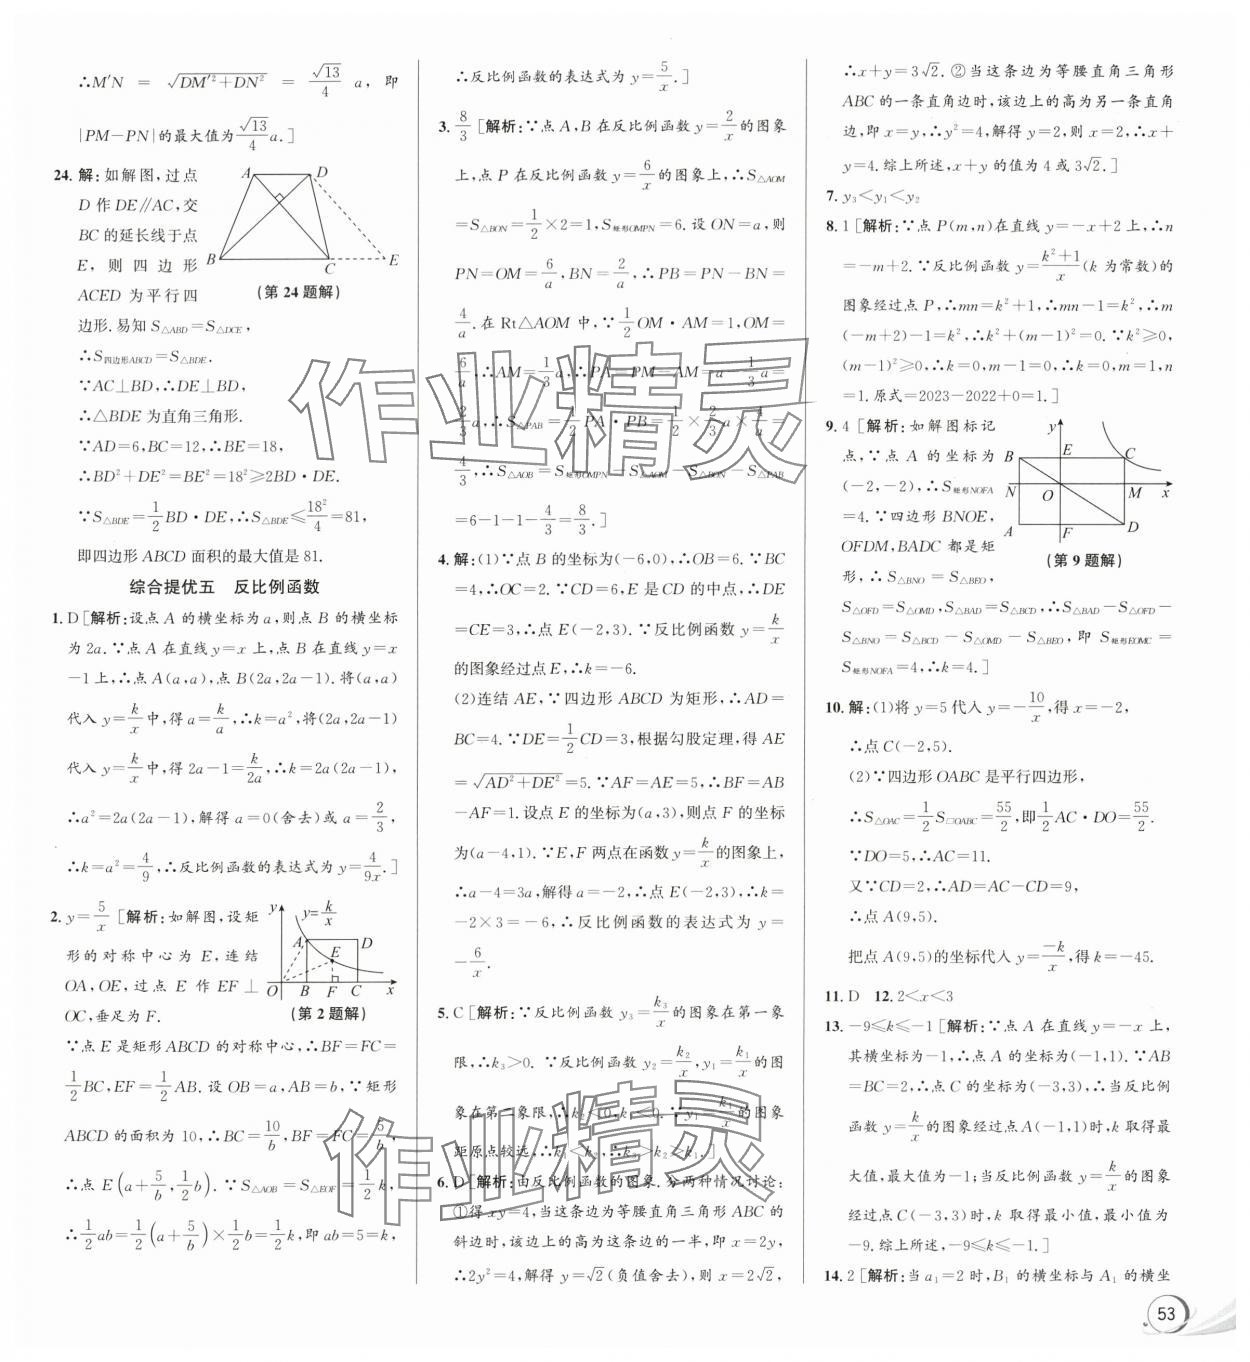 ∴M′N = √(DM′²+DN²) = (√13/4)a, 即
|PM−PN|的最大值为(√13/4)a.]
24. 解:如解图,过点
D作DE∥AC,交
BC的延长线于点
E,则四边形
ACED为平行四
边形.易知S△ABD=S△DCE,
∴S四边形ABCD=S△BDE.
∵AC⊥BD,∴DE⊥BD,
∴△BDE为直角三角形.
∵AD=6,BC=12,∴BE=18,
∴BD²+DE²=BE²=18²≥2BD·DE.
∵S△BDE=1/2 BD·DE,∴S△BDE≤18²/4=81,
即四边形ABCD面积的最大值是81.
A D
B C E
(第24题解)
综合提优五 反比例函数
1. D [解析:设点A的横坐标为a,则点B的横坐标
为2a.∵点A在直线y=x上,点B在直线y=x
−1上,∴点A(a,a),点B(2a,2a−1).将(a,a)
代入y=k/x中,得a=k/a,∴k=a²,将(2a,2a−1)
代入y=k/x中,得2a−1=k/2a,∴k=2a(2a−1),
∴a²=2a(2a−1),解得a=0(舍去)或a=2/3,
∴k=a²=4/9,∴反比例函数的表达式为y=4/9x.]
2. y=5/x [解析:如解图,设矩
形的对称中心为E,连结
OA,OE,过点E作EF⊥
OC,垂足为F.
y y=k/x
A D
E
O B F C x
(第2题解)
∵点E是矩形ABCD的对称中心,∴BF=FC=
1/2 BC,EF=1/2 AB.设OB=a,AB=b,∵矩形
ABCD的面积为10,∴BC=10/b,BF=FC=5/b,
∴点E(a+5/b,1/2 b).∵S△AOB=S△EOF=1/2 k,
∴1/2 ab=1/2(a+5/b)×1/2 b=1/2 k,即ab=5=k,
∴反比例函数的表达式为y=5/x.]
3. 8/3 [解析:∵点A,B在反比例函数y=2/x的图象
上,点P在反比例函数y=6/x的图象上,∴S△AOM
=S△BON=1/2×2=1,S矩形OMPN=6.设ON=a,则
PN=OM=6/a,BN=2/a,∴PB=PN−BN=
4/a.在Rt△AOM中,∵1/2 OM·AM=1,OM=
6/a,∴AM=1/3 a,∴PA=PM−AM=a−1/3 a=
2/3 a,∴S△PAB=1/2 PA·PB=1/2×2/3 a×4/a=
4/3,∴S△AOB=S矩形OMPN−S△AOM−S△BON−S△PAB
=6−1−1−4/3=8/3.]
4. 解:(1)∵点B的坐标为(−6,0),∴OB=6.∵BC
=4,∴OC=2.∵CD=6,E是CD的中点,∴DE
=CE=3,∴点E(−2,3).∵反比例函数y=k/x
的图象经过点E,∴k=−6.
(2)连结AE,∵四边形ABCD为矩形,∴AD=
BC=4.∵DE=1/2 CD=3,根据勾股定理,得AE
=√(AD²+DE²)=5.∵AF=AE=5,∴BF=AB
−AF=1.设点E的坐标为(a,3),则点F的坐标
为(a−4,1).∵E,F两点在函数y=k/x的图象上,
∴a−4=3a,解得a=−2,∴点E(−2,3),∴k=
−2×3=−6,∴反比例函数的表达式为y=
−6/x.
5. C [解析:∵反比例函数y₃=k₃/x的图象在第一象
限,∴k₃>0.∵反比例函数y₂=k₂/x,y₁=k₁/x的图
象在第二象限,∴k₂<0,k₁<0.∵y₁=k₁/x的图象
距原点较远,∴k₁<k₂,∴k₃>k₂>k₁.]
6. D [解析:由反比例函数的图象.分两种情况讨论:
①得xy=4,当这条边为等腰直角三角形ABC的
斜边时,该边上的高为这条边的一半,即x=2y,
∴2y²=4,解得y=√2(负值舍去),则x=2√2,
∴x+y=3√2.②当这条边为等腰直角三角形
ABC的一条直角边时,该边上的高为另一条直角
边,即x=y,∴y²=4,解得y=2,则x=2,∴x+
y=4.综上所述,x+y的值为4或3√2.]
7. y₃<y₁<y₂
8. 1 [解析:∵点P(m,n)在直线y=−x+2上,∴n
=−m+2.∵反比例函数y=(k²+1)/x(k为常数)的
图象经过点P,∴mn=k²+1,∴mn−1=k²,∴m
(−m+2)−1=k²,∴k²+(m−1)²=0.∵k²≥0,
(m−1)²≥0,∴k=0,m−1=0,∴k=0,m=1,n
=1.原式=2023−2022+0=1.]
9. 4 [解析:如解图标记
点,∵点A的坐标为
(−2,−2),∴S矩形NOFA
=4.∵四边形BNOE,
OFDM,BADC都是矩
形,∴S△BNO=S△BEO,
S△OFD=S△OMD,S△BAD=S△BCD,∴S△BAD−S△OFD−
S△BNO=S△BCD−S△OMD−S△BEO,即S矩形EOMC=
S矩形NOFA=4,∴k=4.]
y
B E C
N O M x
A F D
(第9题解)
10. 解:(1)将y=5代入y=−10/x,得x=−2,
∴点C(−2,5).
(2)∵四边形OABC是平行四边形,
∴S△OAC=1/2 S□OABC=55/2,即1/2 AC·DO=55/2.
∵DO=5,∴AC=11.
又∵CD=2,∴AD=AC−CD=9,
∴点A(9,5).
把点A(9,5)的坐标代入y=−k/x,得k=−45.
11. D 12. 2<x<3
13. −9≤k≤−1 [解析:∵点A在直线y=−x上,
其横坐标为−1,∴点A的坐标为(−1,1).∵AB
=BC=2,∴点C的坐标为(−3,3),∴当反比例
函数y=k/x的图象经过点A(−1,1)时,k取得最
大值,最大值为−1;当反比例函数y=k/x的图象
经过点C(−3,3)时,k取得最小值,最小值为
−9.综上所述,−9≤k≤−1.]
14. 2 [解析:当a₁=2时,B₁的横坐标与A₁的横坐
53
作业精灵
作业精灵